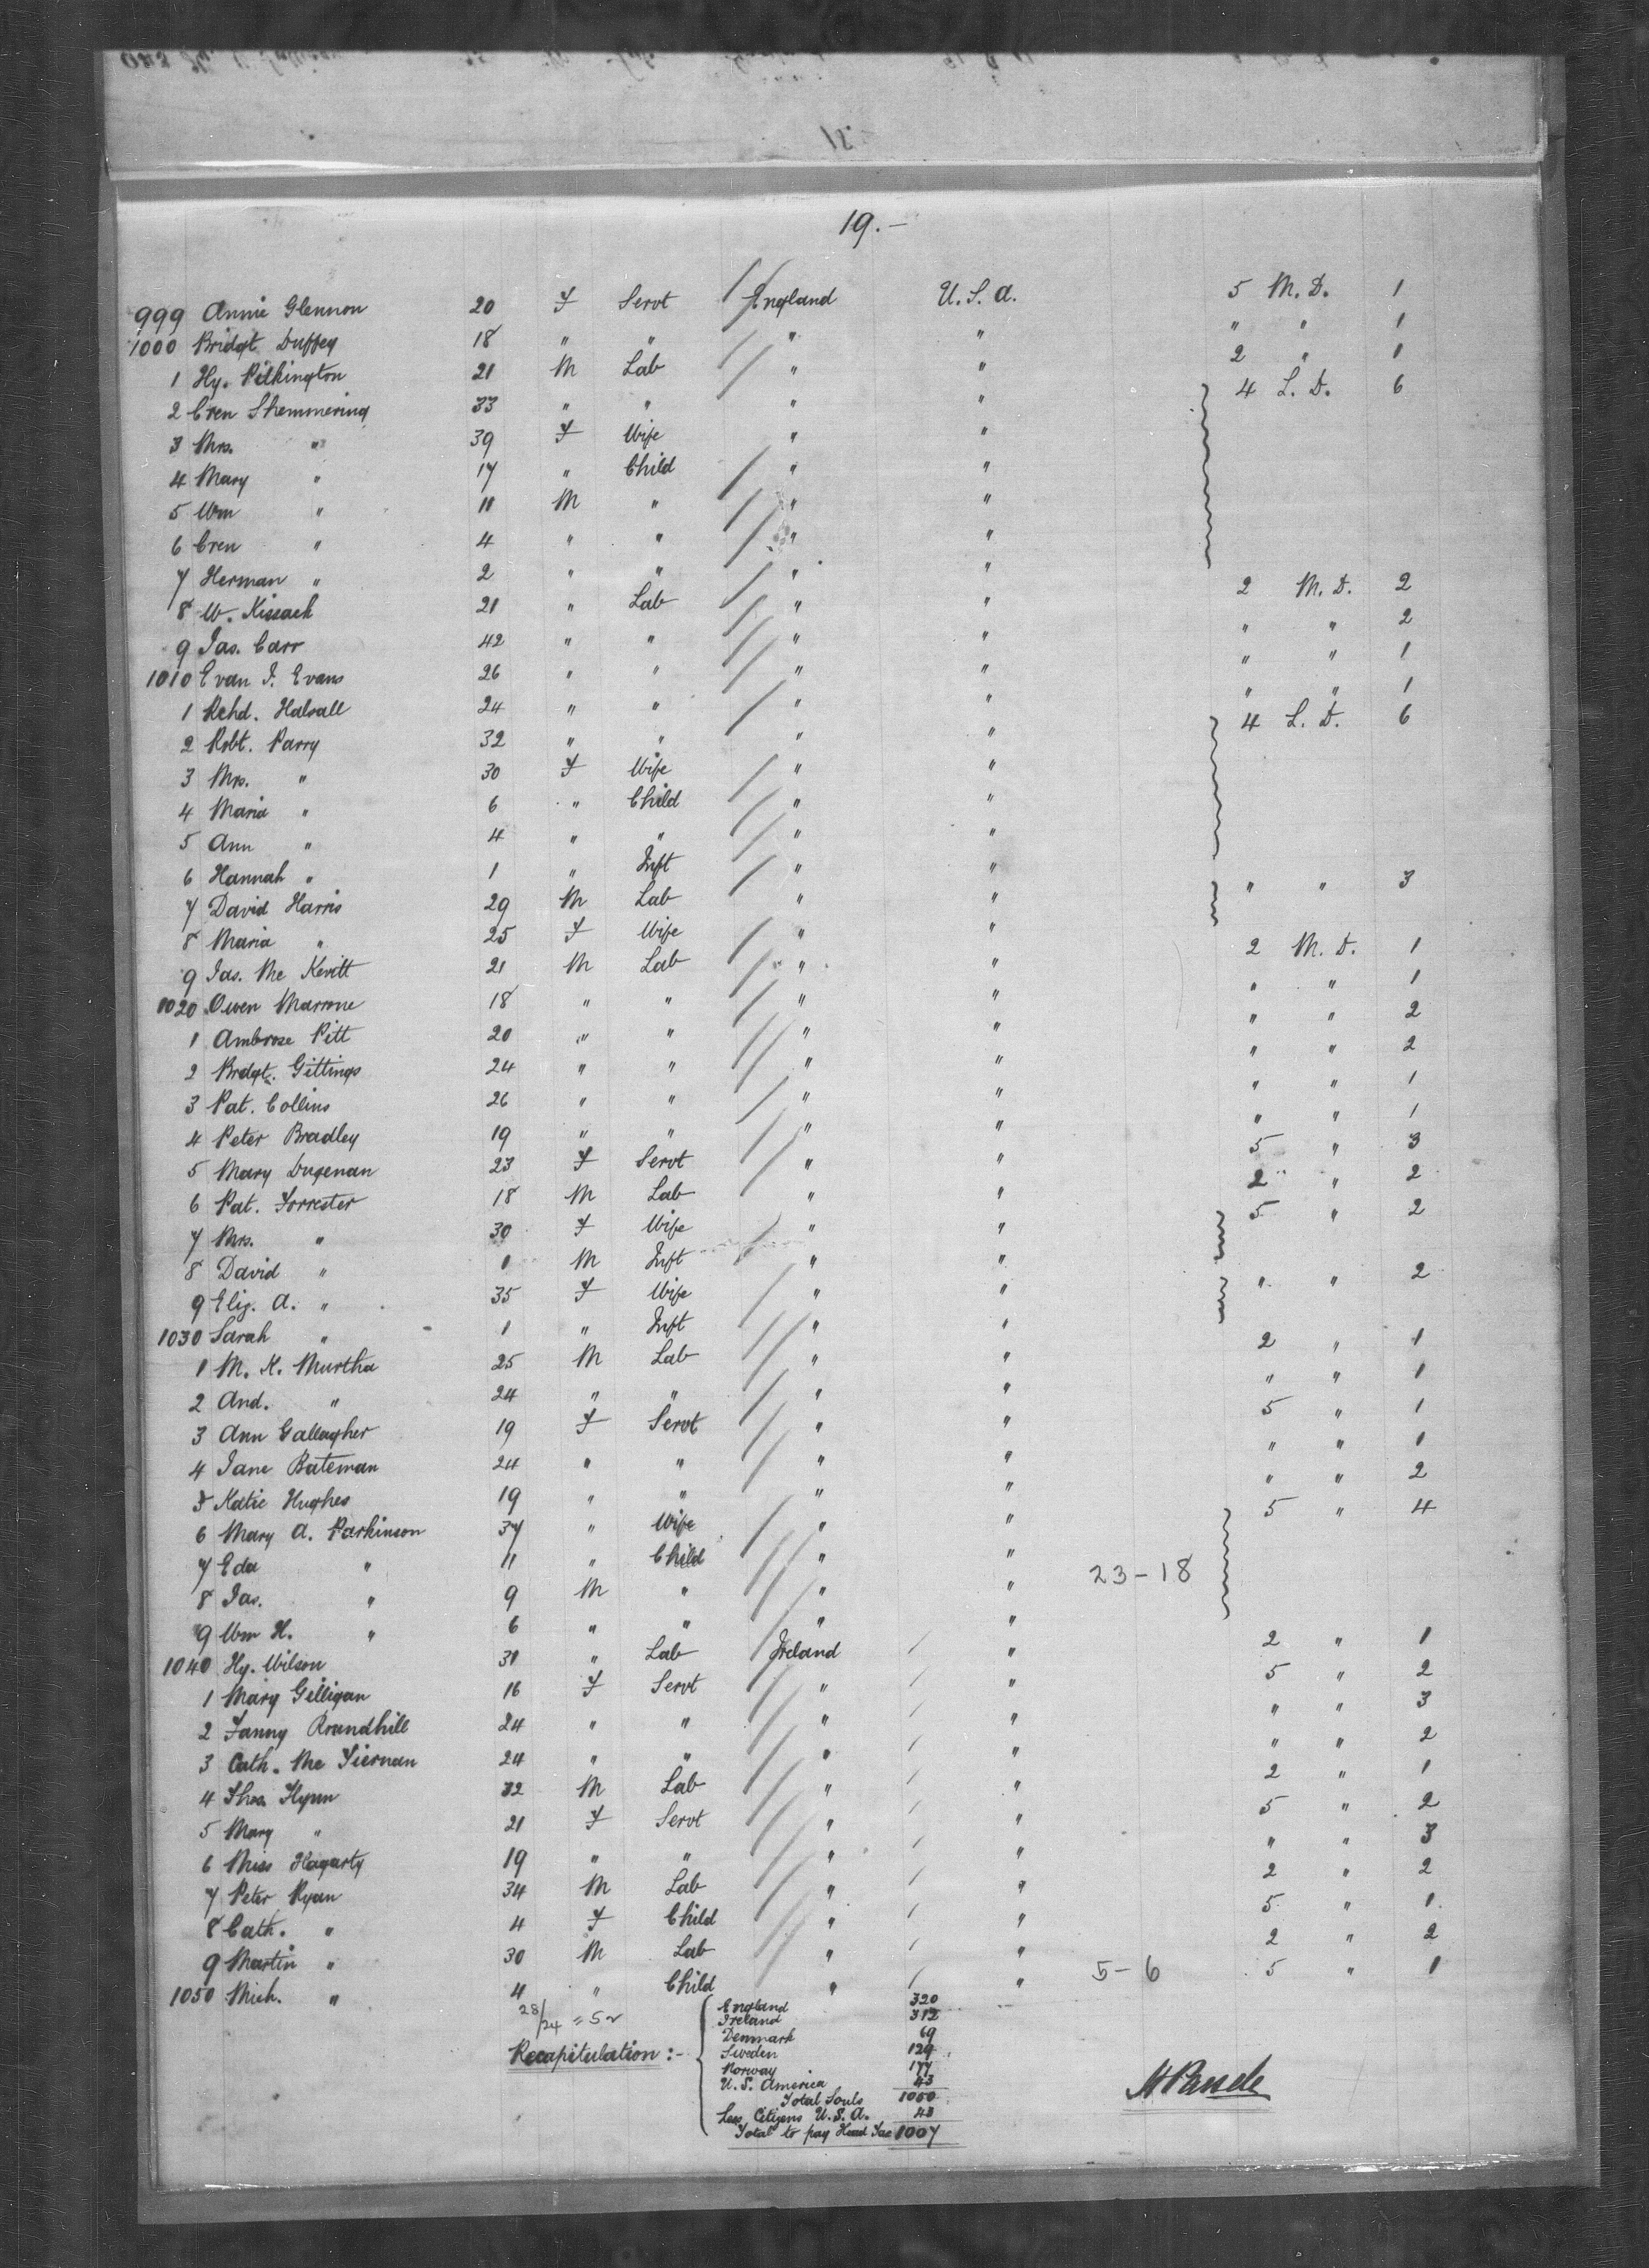 19.—
999 Annie Glennon 20 F Servt England U.S.A. 5 M.D. 1
1000 Bridgt Duffey 18 " " " " " " 1
1 Hy. Pilkington 21 M Lab " " 2 " 1
2 Shemmering 33 " " " " 4 L.D. 6
3 Mrs. " 39 F Wife " "
4 Mary " 17 " Child " "
5 Wm " 11 M " " "
6 " 4 " " " "
7 Herman " 2 " " " "
8 W. Kissack 21 " Lab " " 2 M.D. 2
9 Jas. Carr 42 " " " " " " 2
1010 Evan J. Evans 26 " " " " " " 1
1 Rchd. Halsall 24 " " " " " " 1
2 Robt. Parry 32 " " " " 4 L.D. 6
3 Mrs. " 30 F Wife " "
4 Maria " 6 " Child " "
5 Ann " 4 " " " "
6 Hannah " 1 " Inft " "
7 David Harris 29 M Lab " " " " 3
8 Maria " 25 F Wife " "
9 Jas. Mc Kevitt 21 M Lab " " 2 M.D. 1
1020 Owen Marrone 18 " " " " " " 1
1 Ambrose Pitt 20 " " " " " " 2
2 Brdgt. Gittings 24 " " " " " " 2
3 Pat. Collins 26 " " " " " " 1
4 Peter Bradley 19 " " " " " " 1
5 Mary Dugenan 23 F Servt " " 5 " 3
6 Pat. Forrester 18 M Lab " " 2 " 2
7 Mrs. " 30 F Wife " " 5 " 2
8 David " 1 M Inft " "
9 Eliz. A. " 35 F Wife " " " " 2
1030 Sarah " 1 " Inft " "
1 M. K. Murtha 25 M Lab " " 2 " 1
2 And. " 24 " " " " " " 1
3 Ann Gallagher 19 F Servt " " 5 " 1
4 Jane Bateman 24 " " " " " " 1
5 Katie Hughes 19 " " " " " " 2
6 Mary A. Parkinson 37 " Wife " " 5 " 4
7 Eda " 11 " Child " "
8 Jas. " 9 M " " " 23-18
9 Wm H. " 6 " " " "
1040 Hy. Wilson 31 " Lab Ireland " 2 " 1
1 Mary Gilligan 16 F Servt " " 5 " 2
2 Fanny Roundhill 24 " " " " " " 3
3 Cath. Mc Tiernan 24 " " " " " " 2
4 Thos. Flynn 32 M Lab " " 2 " 1
5 Mary " 21 F Servt " " 5 " 2
6 Miss Hagarty 19 " " " " " " 3
7 Peter Ryan 34 M Lab " " 2 " 2
8 Cath. " 4 F Child " " 5 " 1
9 Martin " 30 M Lab " " 2 " 2
1050 Mich. " 4 " Child " " 5-6 5 " 1
28/24 = 52
Recapitulation:-
England 320
Ireland 312
Denmark 69
Sweden 129
Norway 177
U.S. America 43
Total Souls 1050
Less Citizens U.S.A. 43
Total to pay Head Tax 1007